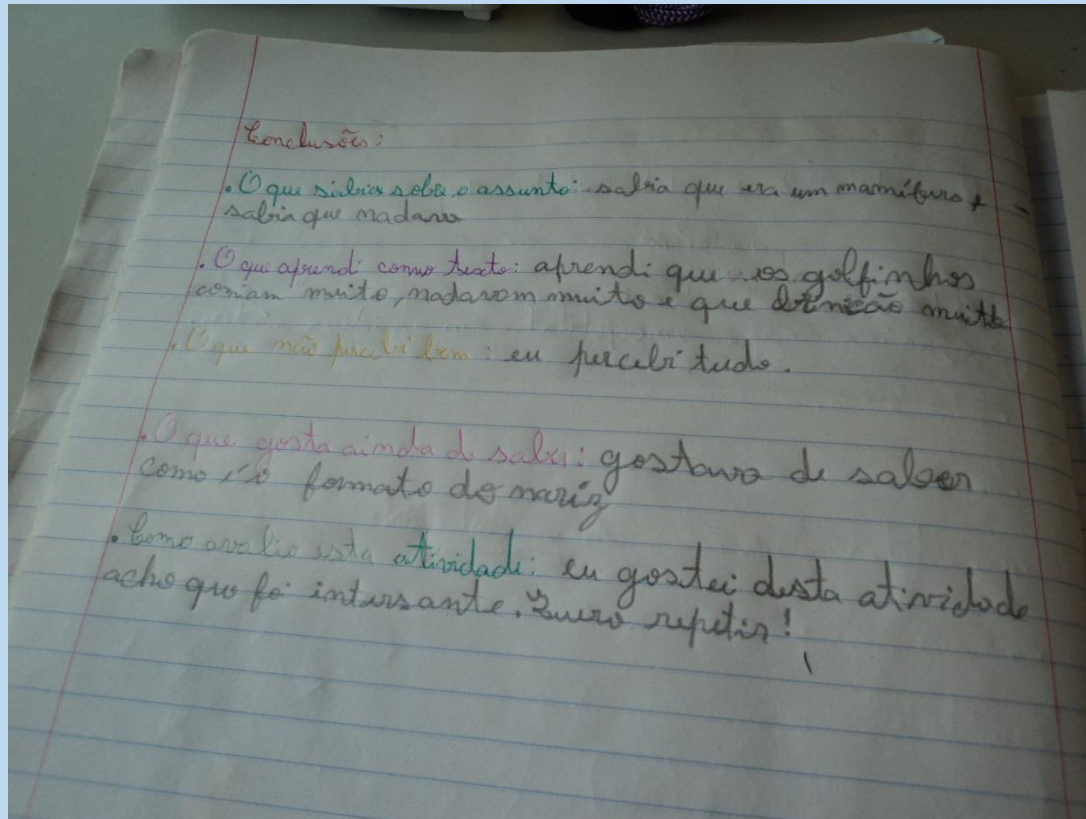 Conclusões:
. O que sabia sobre o assunto: sabia que era um mamífero e
sabia que nadava
. O que aprendi com o texto: aprendi que os golfinhos
comiam muito, nadavam muito e que muito
. O que não percebi bem: eu percebi tudo.
. O que gosta ainda de saber: gostava de saber
como é o formato do nariz
. Como avalio esta atividade: eu gostei desta atividade
acho que foi intersante. Quero repetir!